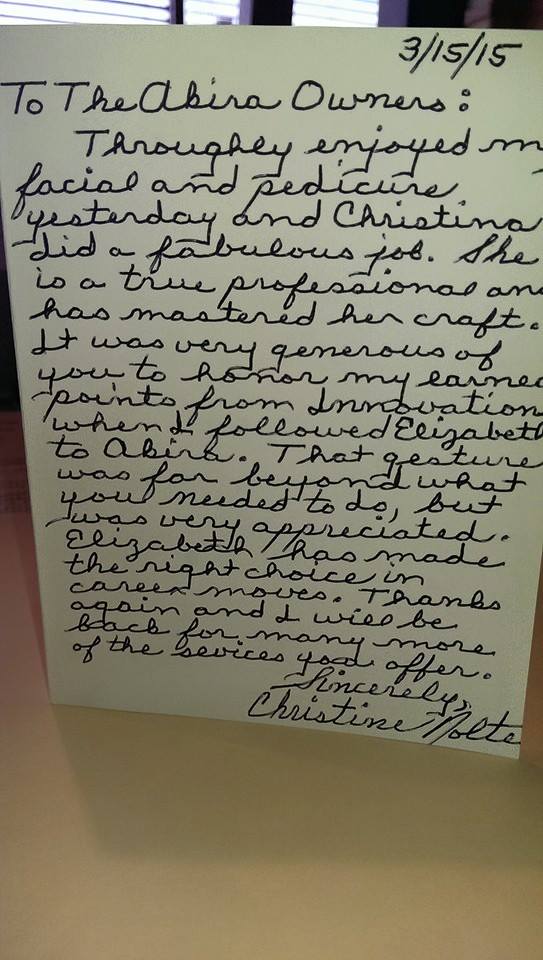 3/15/15
To The Abira Owners:
Throughly enjoyed m
facial and pedicure
yesterday and Christina
did a fabulous job. She
is a true professional an
has mastered her craft.
It was very generous of
you to honor my earned
points from Innovation
when I followed Elizabeth
to Abira. That gesture
was far beyond what
you needed to do, but
was very appreciated.
Elizabeth has made
the right choice in
career moves. Thanks
again and I will be
back for many more
of the sevices you offer.
Sincerely,
Christine Nolte